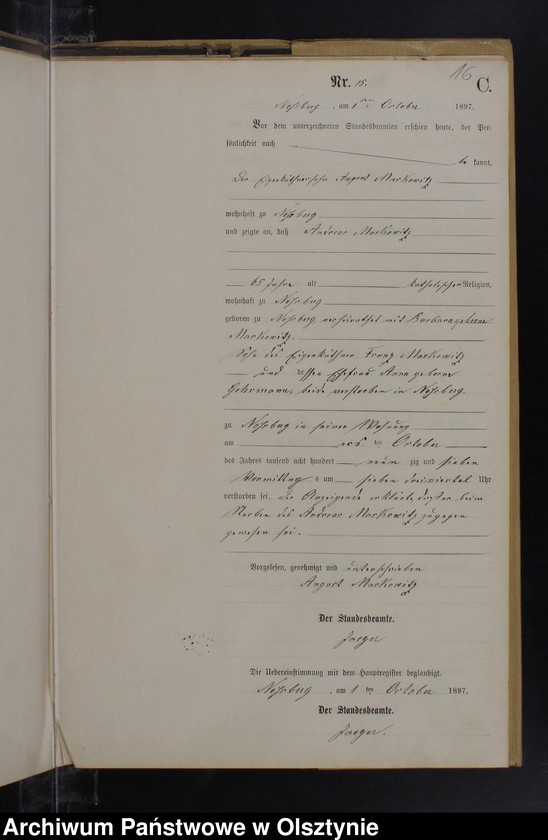 16
Nr. 15.
C.
Noßberg, am 1ten October 1897.
Vor dem unterzeichneten Standesbeamten erschien heute, der Per-
sönlichkeit nach
be kannt,
August Markowitz
wohnhaft zu Noßberg
und zeigte an, daß Andreas Markowitz
65 Jahre alt katholischer Religion,
wohnhaft zu Noßberg
geboren zu Noßberg, verheirathet mit Barbara geborene
Markowitz.
Sohn des Eigenkäthner Franz Markowitz
und dessen Ehefrau Anna geborene
Gehrmann, beide verstorben in Noßberg.
zu Noßberg in seiner Wohnung
am October
des Jahres tausend acht hundert neun zig und sieben
Vormittags um sieben dreiviertel Uhr
verstorben sei. Der Anzeigende erklärte, daß er beim
Sterben des Andreas Markowitz zugegen
gewesen sei.
Vorgelesen, genehmigt und unterschrieben
August Markowitz
Der Standesbeamte.
Jaeger
Die Uebereinstimmung mit dem Hauptregister beglaubigt.
Noßberg, am 1ten October 1897.
Der Standesbeamte.
Jaeger.
Archiwum Państwowe w Olsztynie